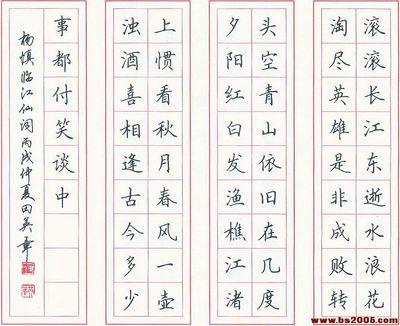 滚滚长江东逝水浪花
淘尽英雄是非成败转
头空青山依旧在几度
夕阳红白发渔樵江渚
上惯看秋月春风一壶
浊酒喜相逢古今多少
事都付笑谈中
杨慎临江仙词丙戌仲夏田英章
www.bs2005.com